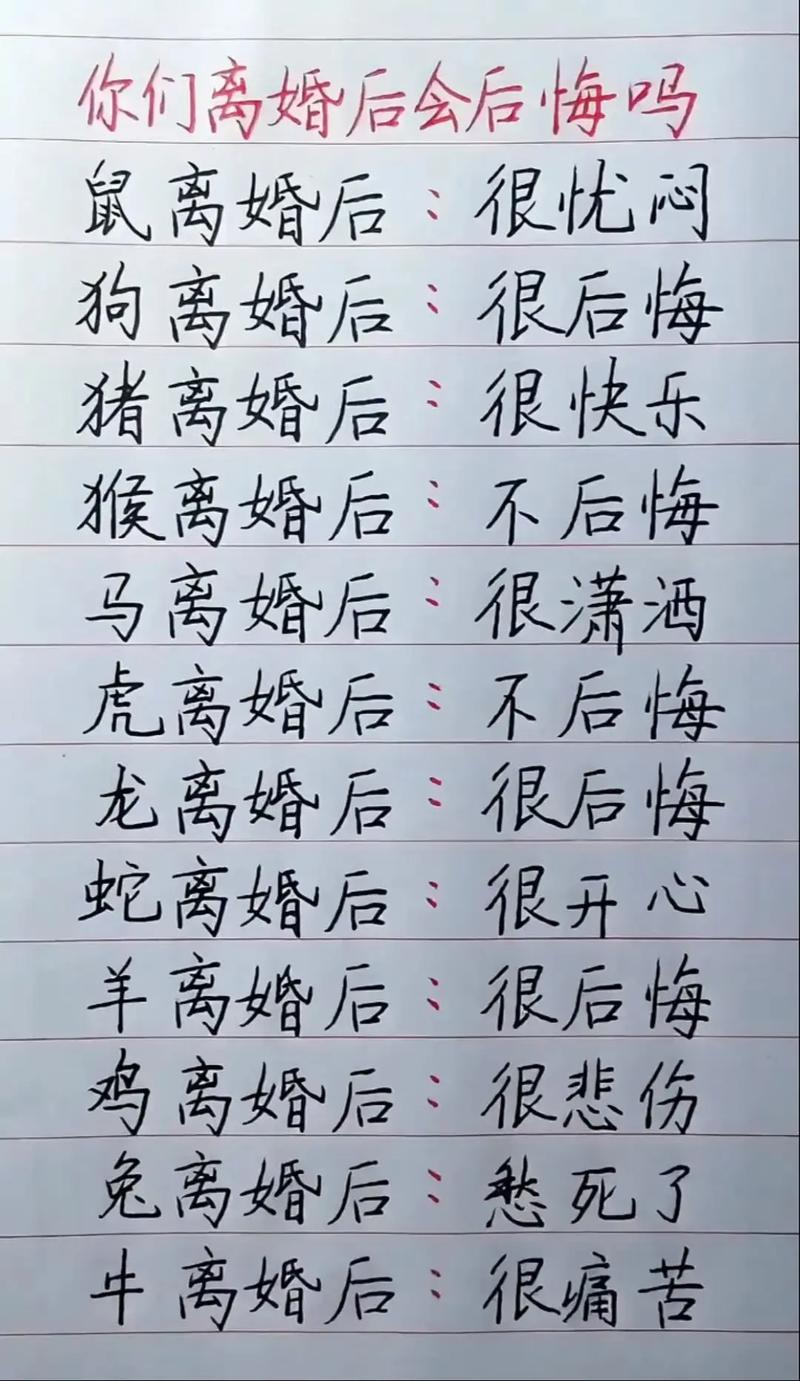 你们离婚后会后悔吗
鼠离婚后：很忧闷
狗离婚后：很后悔
猪离婚后：很快乐
猴离婚后：不后悔
马离婚后：很潇洒
虎离婚后：不后悔
龙离婚后：很后悔
蛇离婚后：很开心
羊离婚后：很后悔
鸡离婚后：很悲伤
兔离婚后：愁死了
牛离婚后：很痛苦